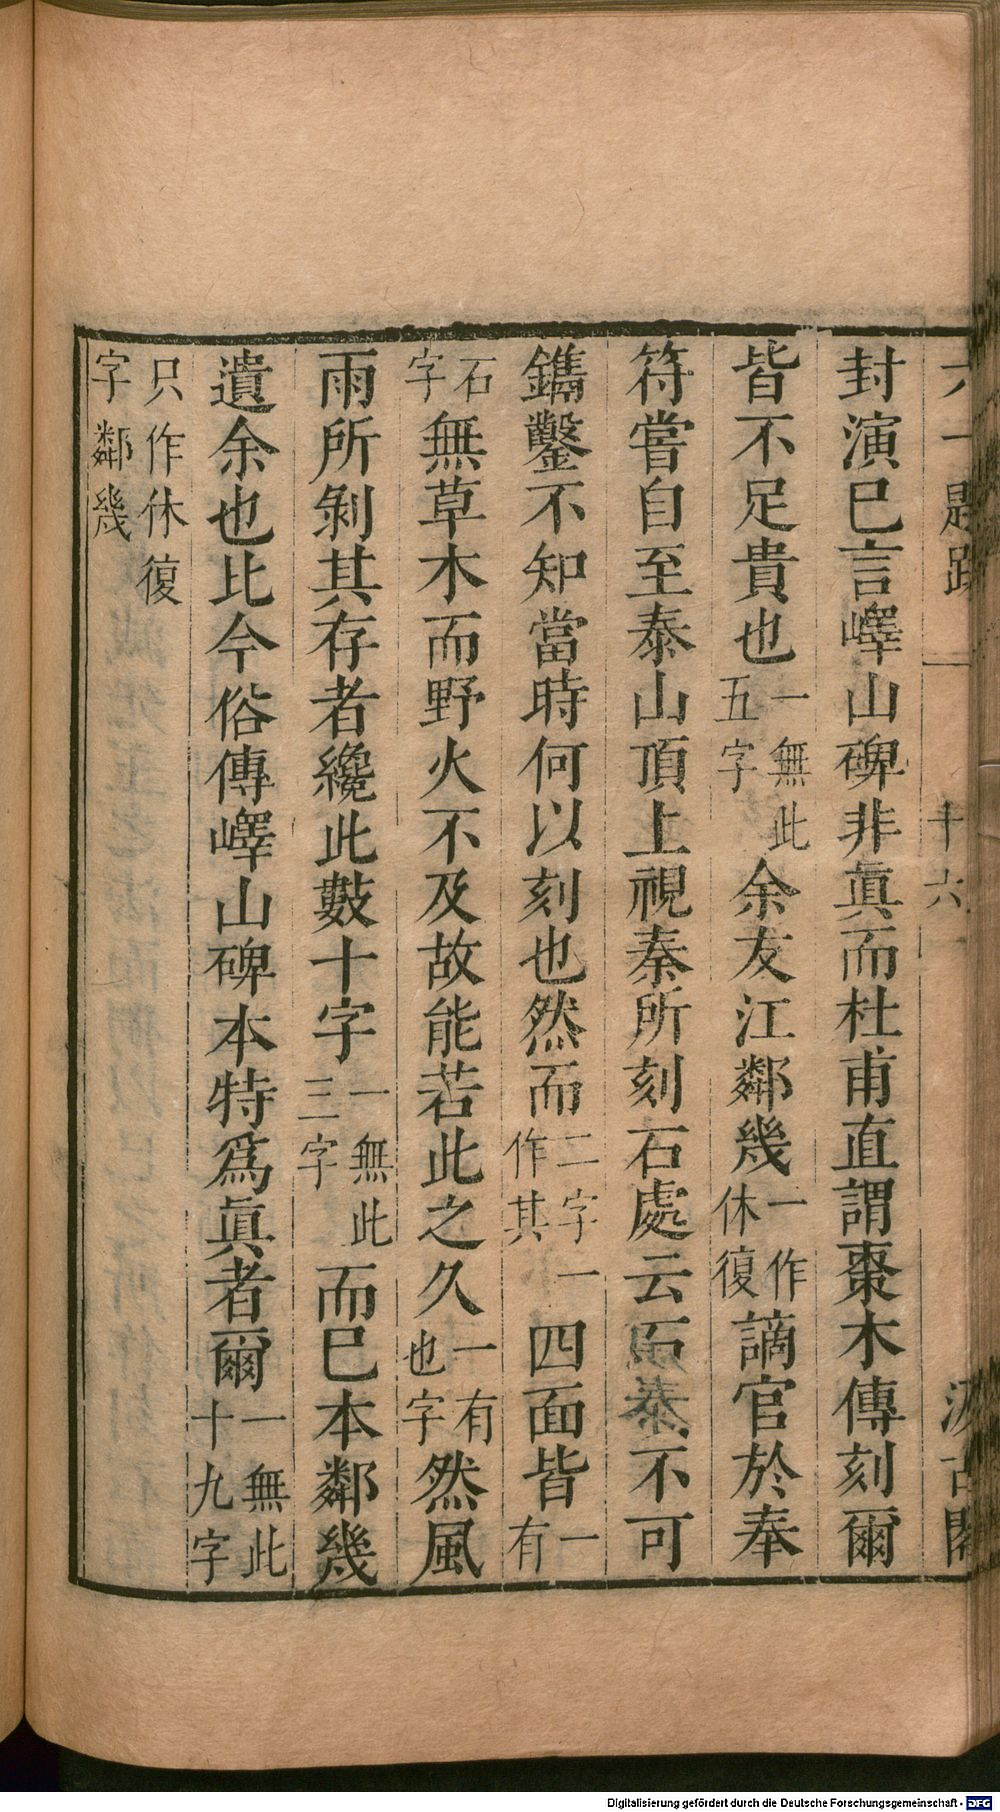 六一題跋 卷一 十六 汲古閣
封演已言嶧山碑非眞而杜甫直謂棗木傳刻爾
皆不足貴也一無此五字余友江鄰幾一作休復謫官於奉
符嘗自至泰山頂上視秦所刻石處云石泰不可
鐫鑿不知當時何以刻也然而二字一作其四面皆一有
石字無草木而野火不及故能若此之久一有也字然風
雨所剝其存者纔此數十字一無此三字而已本鄰幾
遺余也比今俗傳嶧山碑本特爲眞者爾一無此十九字
只作休復字鄰幾
Digitalisierung gefördert durch die Deutsche Forschungsgemeinschaft - DFG